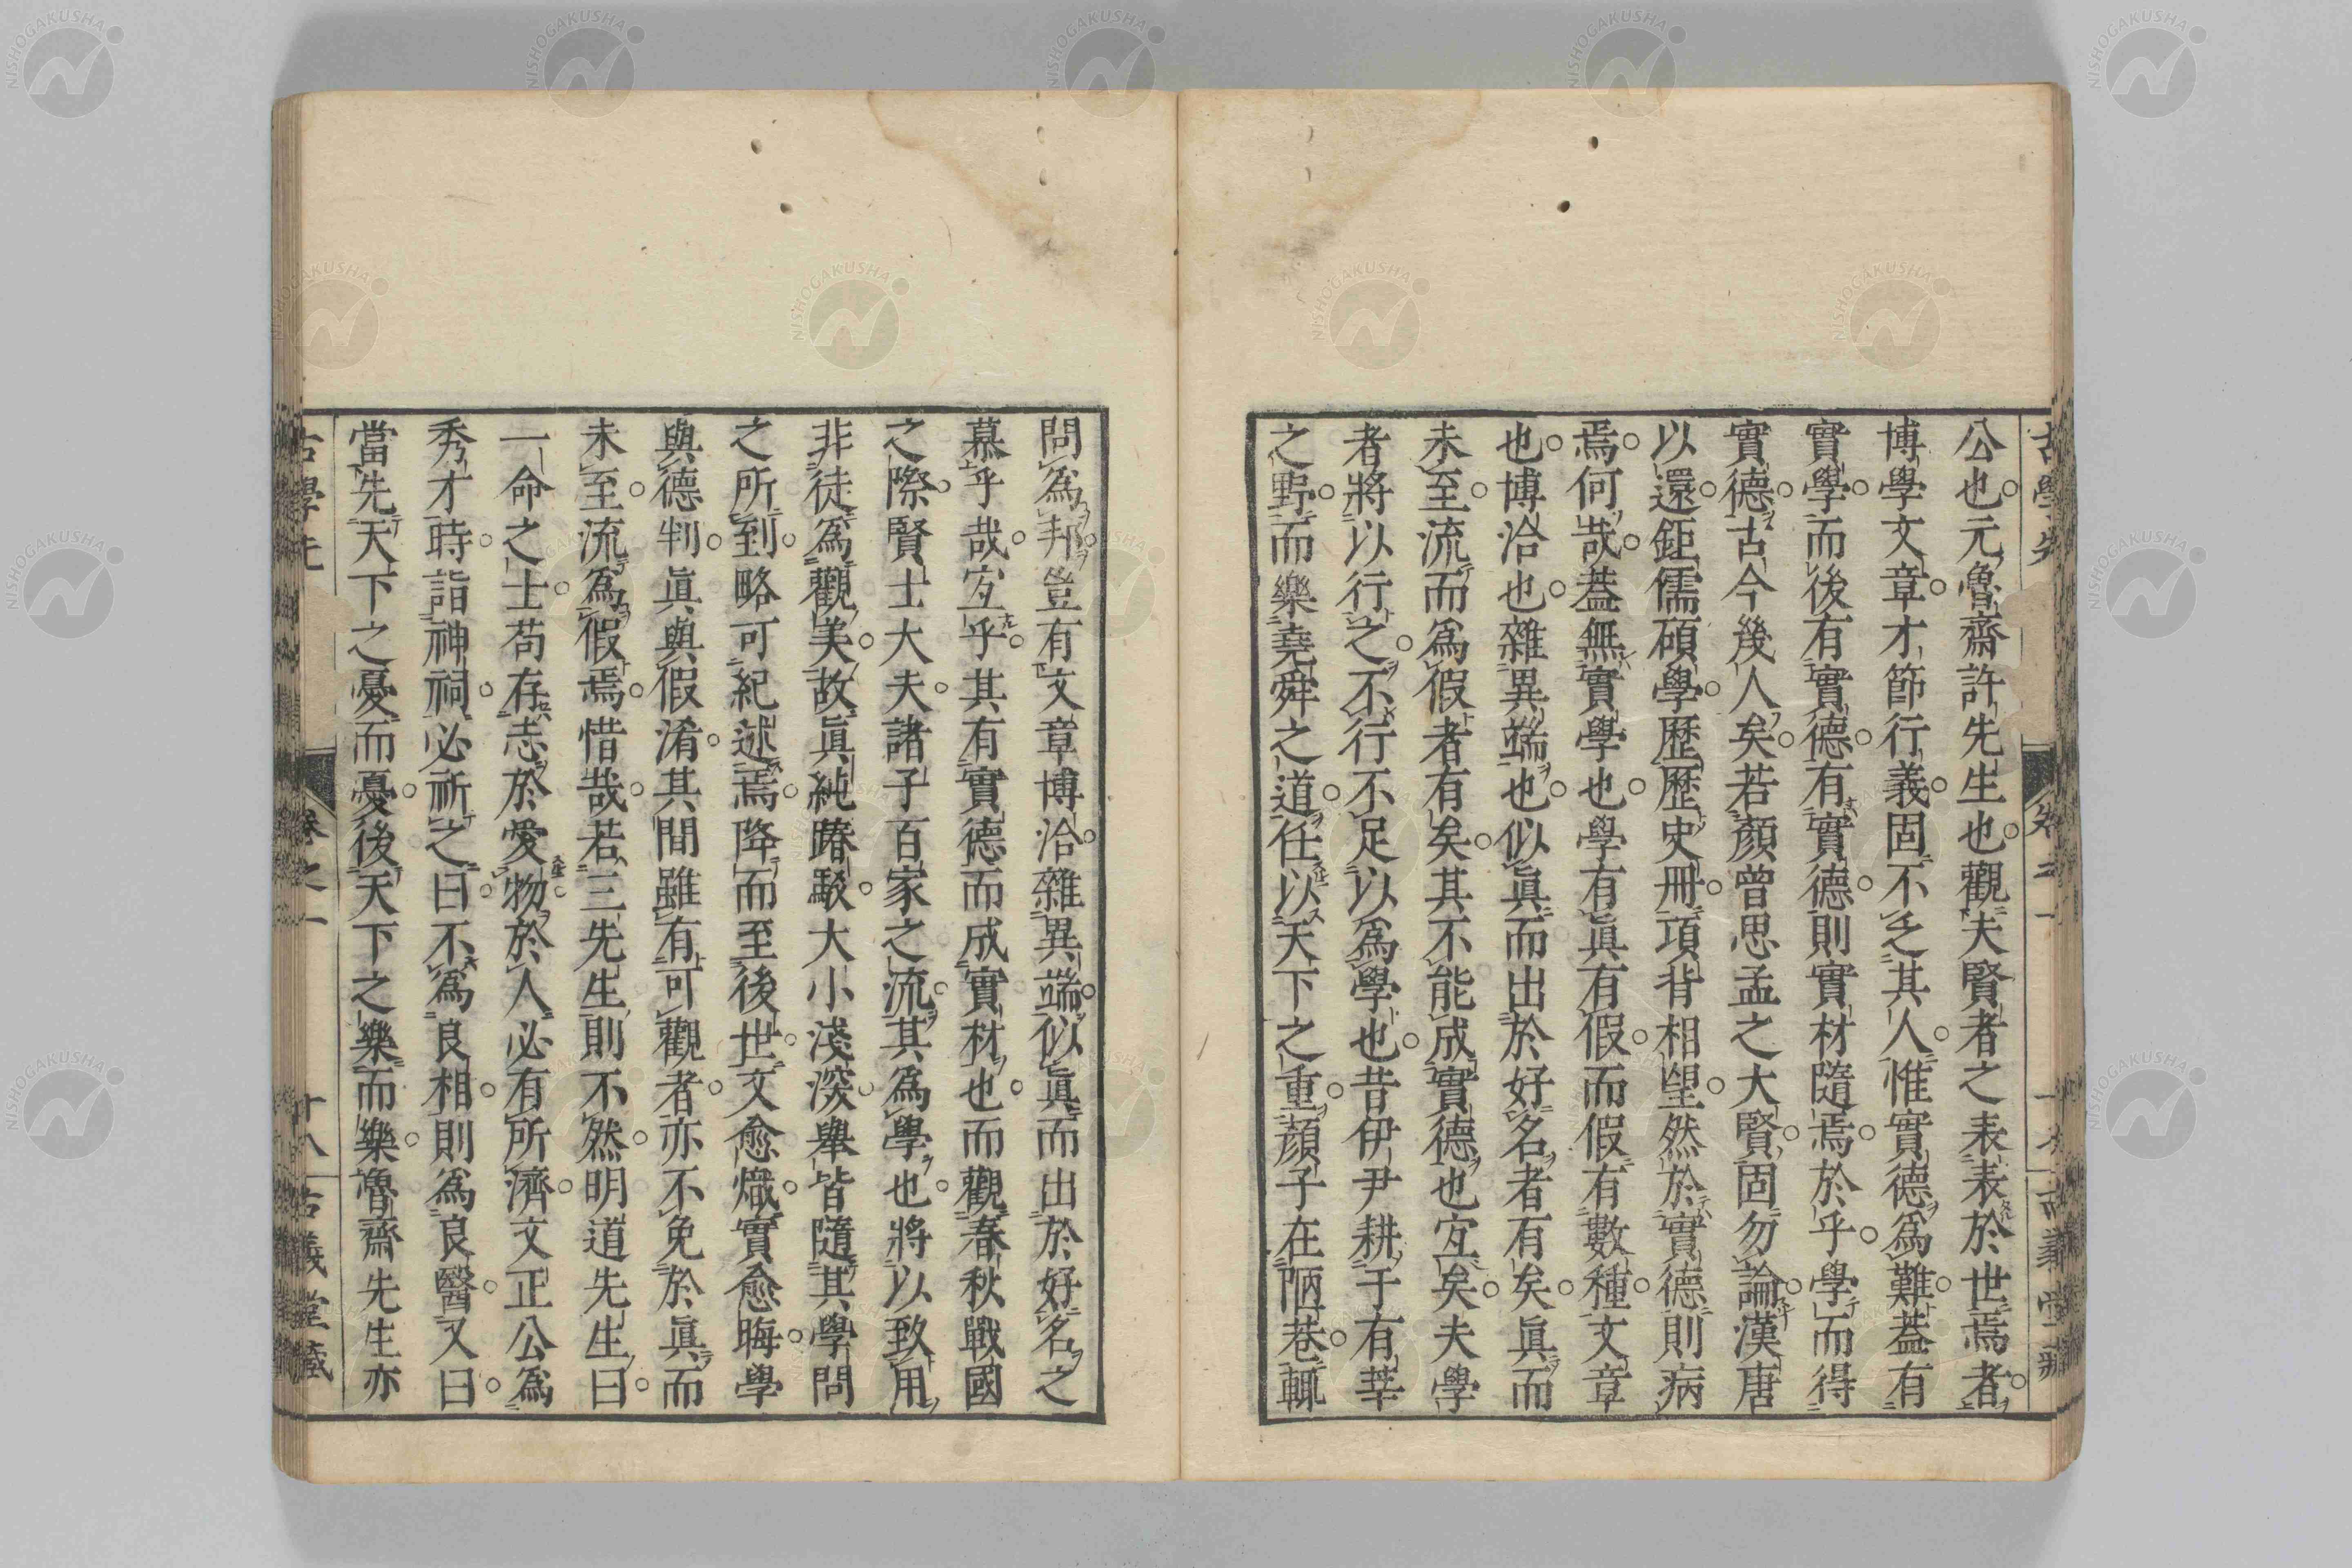 公也元魯齋許先生也觀夫賢者之表表於世焉者
博學文章才節行義固不乏其人惟實德爲難蓋有
實學而後有實德有實德則實材隨焉於乎學而得
實德古今幾人矣若顏曾思孟之大賢固勿論漢唐
以還鉅儒碩學歷歷史冊項背相望然於實德則病
焉何哉蓋無實學也學有眞有假而假有數種文章
也博洽也雜異端也似眞而出於好名者有矣眞而
未至流而爲假者有矣其不能成實德也宐矣夫學
者將以行之不行不足以爲學也昔伊尹耕于有莘
之野而樂堯舜之道任以天下之重顏子在陋巷輒
問爲邦豈有文章博洽雜異端似眞而出於好名之
慕乎哉宐乎其有實德而成實材也而觀春秋戰國
之際賢士大夫諸子百家之流其爲學也將以致用
非徒爲觀美故眞純蹐駁大小淺深舉皆隨其學問
之所到略可紀述焉降而至後世文愈熾實愈晦學
與德判眞與假淆其間雖有可觀者亦不免於眞而
未至流爲假焉惜哉若三先生則不然明道先生曰
一命之士苟存志於愛物於人必有所濟文正公爲
秀才時詣神祠必祈之曰不爲良相則爲良醫又曰
當先天下之憂而憂後天下之樂而樂魯齋先生亦
卷之一
十八
古義堂藏
NISHOGAKUSHA